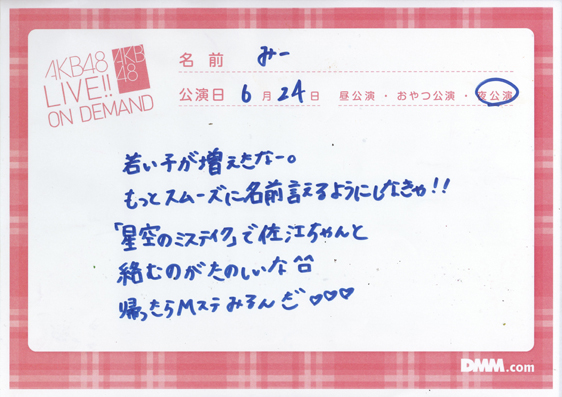 AKB48
LIVE!!
ON DEMAND
AKB
48
名前 みー
公演日 6月24日 昼公演・おやつ公演・夜公演
若い子が増えたなー。
もっとスムーズに名前言えるようにしなきゃ!!
「星空のミステイク」で佐江ちゃんと
絡むのがたのしいな^^
帰ったらMステみるんだ♡♡♡
DMM.com